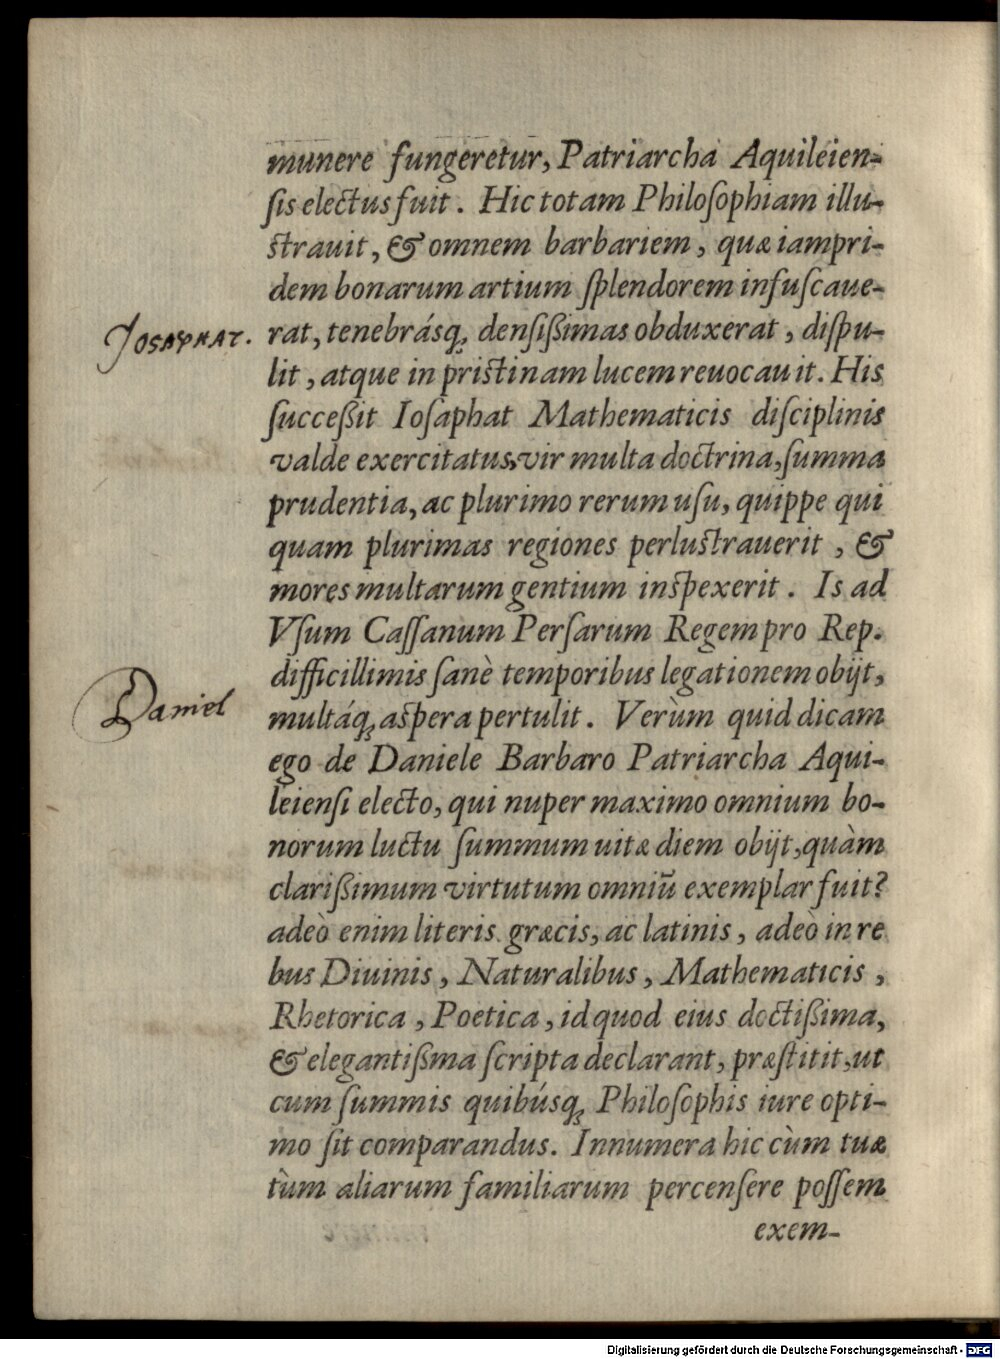 munere fungeretur, Patriarcha Aquileien-
ſis electus fuit. Hic totam Philoſophiam illu-
ſtrauit, & omnem barbariem, quæ iampri-
dem bonarum artium ſplendorem infuſcaue-
Josaphat.
rat, tenebrásq; denſißimas obduxerat, diſpu-
lit, atque in priſtinam lucem reuocauit. His
ſucceßit Ioſaphat Mathematicis diſciplinis
valde exercitatus, vir multa doctrina, ſumma
prudentia, ac plurimo rerum uſu, quippe qui
quam plurimas regiones perluſtrauerit, &
mores multarum gentium inſpexerit. Is ad
Vſum Caſſanum Perſarum Regem pro Rep.
difficillimis ſanè temporibus legationem obijt,
Daniel
multáq; aſpera pertulit. Verùm quid dicam
ego de Daniele Barbaro Patriarcha Aqui-
leienſi electo, qui nuper maximo omnium bo-
norum luctu ſummum uitæ diem obijt, quàm
clarißimum virtutum omniū exemplar fuit?
adeò enim literis græcis, ac latinis, adeò in re
bus Diuinis, Naturalibus, Mathematicis,
Rhetorica, Poetica, id quod eius doctißima,
& elegantißma ſcripta declarant, præſtitit, ut
cum ſummis quibúsq; Philoſophis iure opti-
mo ſit comparandus. Innumera hic cùm tuæ
tùm aliarum familiarum percenſere poſſem
exem-
Digitalisierung gefördert durch die Deutsche Forschungsgemeinschaft - DFG